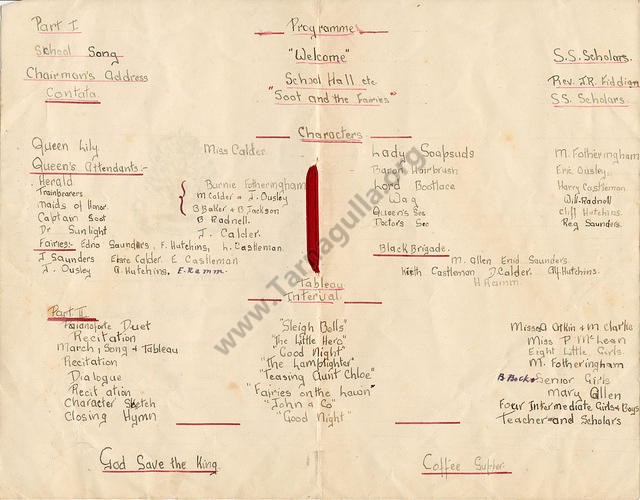 Part I
Programme
School Song "Welcome" S.S. Scholars.
Chairman's Address School Hall etc Rev. J.R. Fiddian
Cantata. "Soot and the Fairies" SS. Scholars
Characters
Queen Lily. Miss Calder. Lady Soapsuds M. Fotheringham
Queen's Attendants:- Baron Hairbrush Eric Ousley.
Herald Burnie Fotheringham Lord Bootlace Harry Castleman.
Trainbearers M Calder & J. Ousley Wag Will Radnell
Maids of Honor. B Baker & B Jackson Queen's Sec Cliff Hutchins.
Captain Soot B Radnell. Doctor's Sec Reg Saunders.
Dr Sunlight J. Calder.
Fairies:- Edna Saunders, F. Hutchins, h. Castleman. Black Brigade.
J Saunders Elsie Calder E Castleman M. Allen Enid Saunders
J. Ousley G. Hutchins, E. Ramm. Keith Castleman D. Calder. Hutchins.
H Ramm.
Tableau
Interval
Part II
Pianoforte Duet "Sleigh Bells" Misses Atkin & M Clarke
Recitation "The Little Hero" Miss P. McLean
March, Song & Tableau "Good Night" Eight Little Girls.
Recitation "The Lamplighter" M. Fotheringham
Dialogue "Teasing Aunt Chloe" Senior Girls
Recitation "Fairies on the Lawn" Mary Allen
Character Sketch "John & Co" Four Intermediate Girls & Boys
Closing Hymn "Good Night" Teacher and Scholars
God Save the King. Coffee Supper.
www.Tarnagulla.org